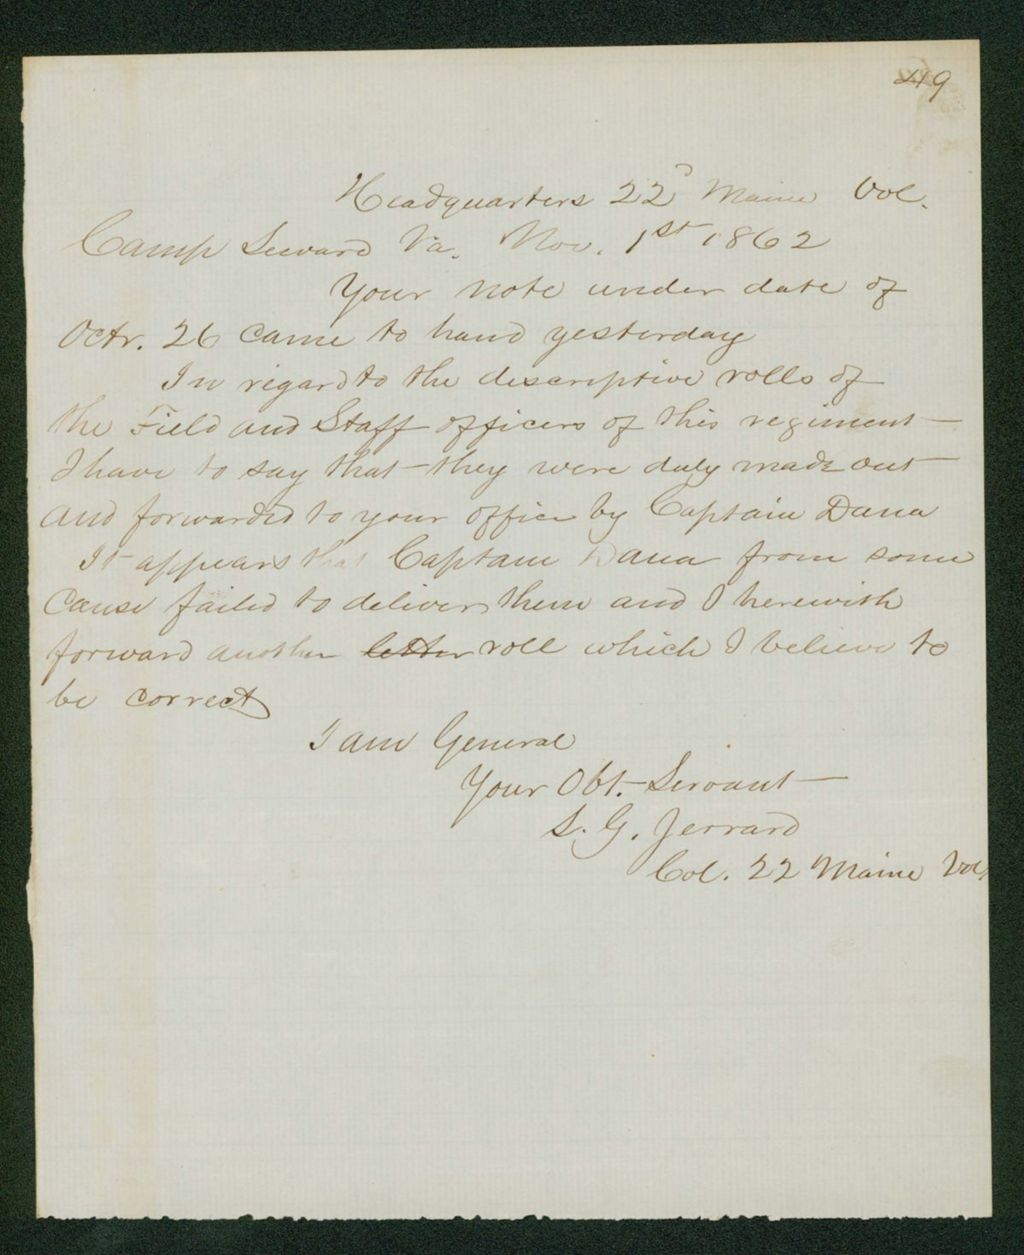 49
Headquarters 22d Maine Vol.
Camp Seward Va. Nov. 1st 1862
Your note under date of
Octr. 26 came to hand yesterday
In regard to the descriptive rolls of
the Field and Staff officers of this regiment
I have to say that they were duly made out
and forwarded to your office by Captain Dana
It appears that Captain Dana from some
cause failed to deliver them and I herewith
forward another letter roll which I believe to
be correct
I am General
Your Obt. Servant
S. G. Jerrard
Col. 22 Maine Vol.